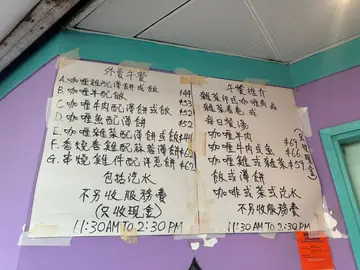 外賣午餐
A. 咖喱雞配薄餅或飯 $44
B. 咖喱牛配飯 $53
C. 咖喱牛肉配薄餅或飯 $52
D. 咖喱魚配薄餅 $52
E. 咖喱雞雜菜配薄餅或飯 $44
F. 香燒香雞配蒜蓉薄餅 $62
G. 串燒雞件配洋蔥餅 $62
包括汽水
不另收服務費
(只收現金)
11:30AM TO 2:30PM
午餐推介
雜菜
每日餐湯
咖喱牛肉 $69
咖喱牛肉或魚 $66
咖喱雞或雜菜 $59
飯或薄餅
咖啡或茶或汽水
不另收服務費
11:30AM TO 2:30PM